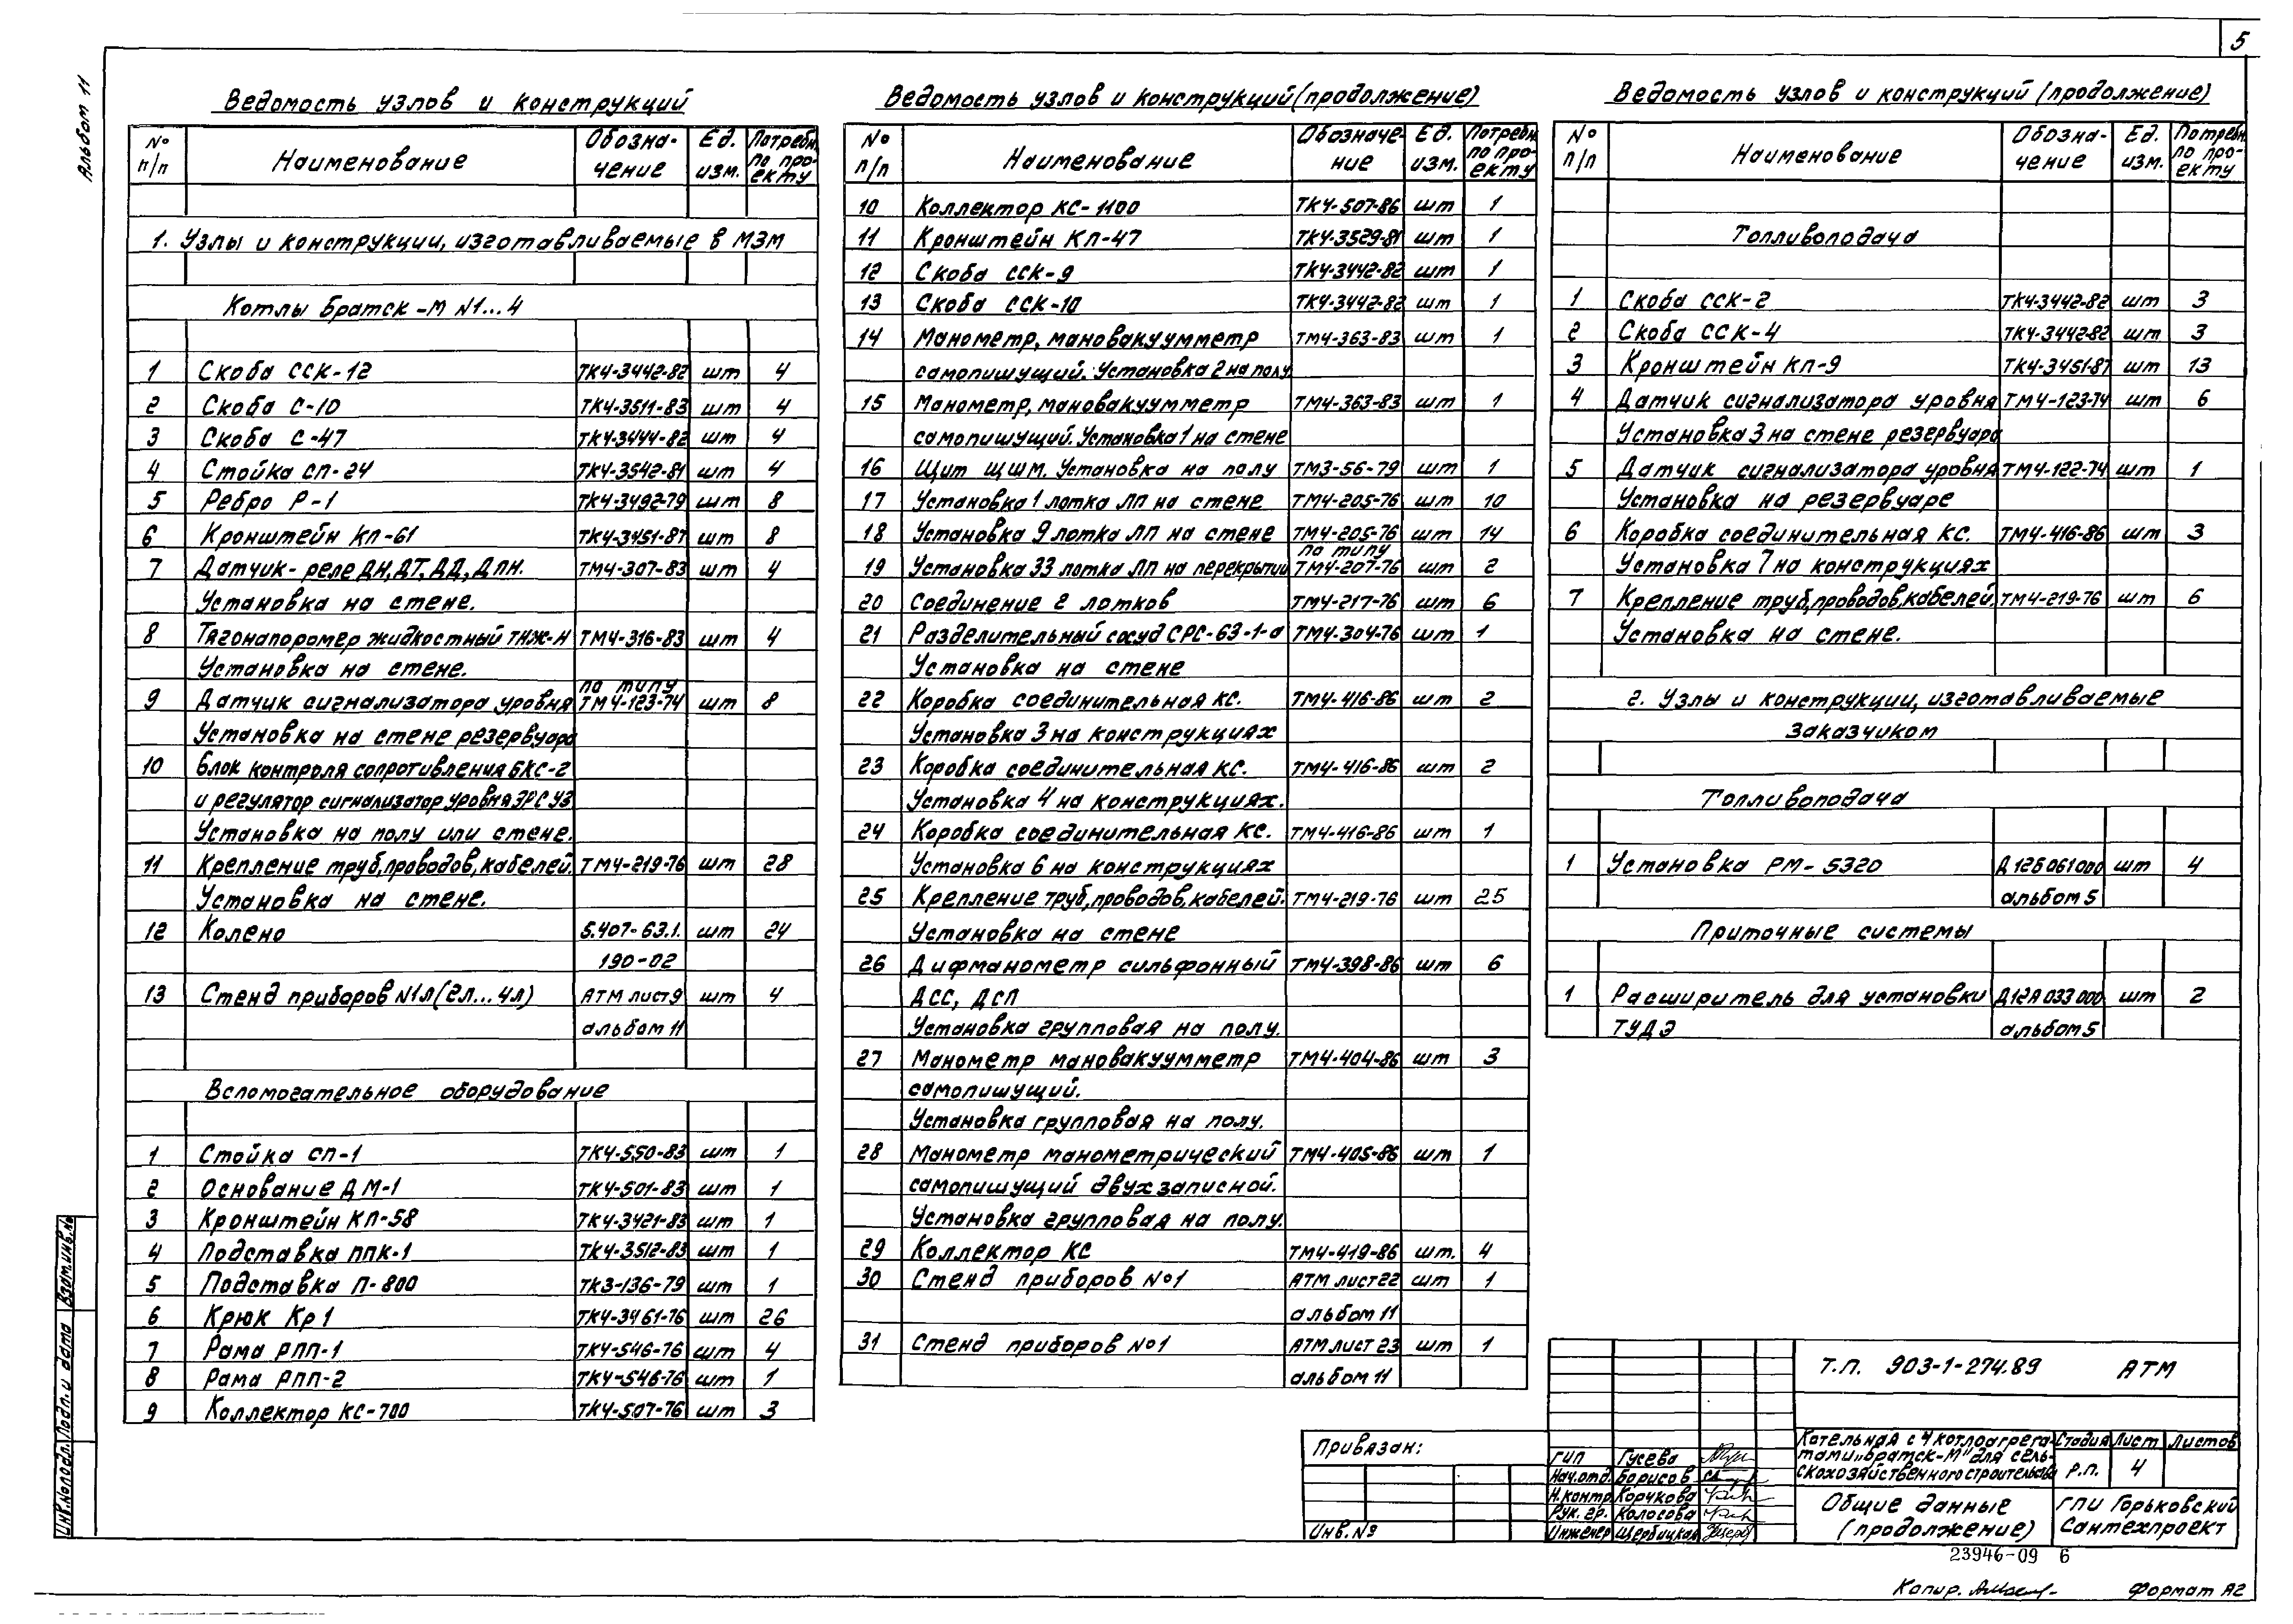 5
Альбом 11
Ведомость узлов и конструкций
№ п/п Наименование Обозна-чение Ед. изм. Потребн. по про-екту
1. Узлы и конструкции, изготавливаемые в МЗМ
Котлы Братск-М №1...4
1 Скоба ССК-12 ТК4-3442-82 шт 4
2 Скоба С-10 ТК4-3511-83 шт 4
3 Скоба С-47 ТК4-3444-82 шт 4
4 Стойка СП-24 ТК4-3542-81 шт 4
5 Ребро Р-1 ТК4-3492-79 шт 8
6 Кронштейн КП-61 ТК4-3451-87 шт 8
7 Датчик-реле ДН, ДТ, ДД, ДПН. ТМ4-307-83 шт 4
Установка на стене.
8 Тягонапоромер жидкостный ТНЖ-Н ТМ4-316-83 шт 4
Установка на стене.
9 Датчик сигнализатора уровня по типу ТМ4-123-74 шт 8
Установка на стене резервуара
10 Блок контроля сопротивления БКС-2
и регулятор сигнализатор уровня ЭРСУЗ
Установка на полу или стене.
11 Крепление труб, проводов, кабелей. ТМ4-219-76 шт 28
Установка на стене.
12 Колено 5.407-63.1. шт 24
190-02
13 Стенд приборов №1л (2л...4л) АТМ лист 9 шт 4
альбом 11
Вспомогательное оборудование
1 Стойка СП-1 ТК4-550-83 шт 1
2 Основание ДМ-1 ТК4-501-83 шт 1
3 Кронштейн КП-58 ТК4-3421-83 шт 1
4 Подставка ППК-1 ТК4-3512-83 шт 1
5 Подставка П-800 ТК3-136-79 шт 1
6 Крюк Кр1 ТК4-3461-76 шт 26
7 Рама РПП-1 ТК4-546-76 шт 4
8 Рама РПП-2 ТК4-546-76 шт 1
9 Коллектор КС-700 ТК4-507-76 шт 3
Ведомость узлов и конструкций (продолжение)
№ п/п Наименование Обозначе-ние Ед. изм. Потребн. по про-екту
10 Коллектор КС-1100 ТК4-507-86 шт 1
11 Кронштейн КП-47 ТК4-3529-81 шт 1
12 Скоба ССК-9 ТК4-3442-82 шт 1
13 Скоба ССК-10 ТК4-3442-82 шт 1
14 Манометр, мановакуумметр ТМ4-363-83 шт 1
самопишущий. Установка 2 на полу
15 Манометр, мановакуумметр ТМ4-363-83 шт 1
самопишущий. Установка 1 на стене
16 Щит ЩШМ. Установка на полу ТМ3-56-79 шт 1
17 Установка 1 лотка ЛП на стене ТМ4-205-76 шт 10
18 Установка 9 лотка ЛП на стене ТМ4-205-76 шт 14
19 Установка 33 лотка ЛП на перекрытии по типу ТМ4-207-76 шт 2
20 Соединение 2 лотков ТМ4-217-76 шт 6
21 Разделительный сосуд СРС-63-1-а ТМ4-304-76 шт 1
Установка на стене
22 Коробка соединительная КС. ТМ4-416-86 шт 2
Установка 3 на конструкциях
23 Коробка соединительная КС. ТМ4-416-86 шт 2
Установка 4 на конструкциях.
24 Коробка соединительная КС. ТМ4-416-86 шт 1
Установка 6 на конструкциях
25 Крепление труб, проводов, кабелей. ТМ4-219-76 шт 25
Установка на стене
26 Дифманометр сильфонный ТМ4-398-86 шт 6
ДСС, ДСП
Установка групповая на полу.
27 Манометр мановакуумметр ТМ4-404-86 шт 3
самопишущий.
Установка групповая на полу.
28 Манометр манометрический ТМ4-405-86 шт 1
самопишущий двухзаписной.
Установка групповая на полу.
29 Коллектор КС ТМ4-419-86 шт. 4
30 Стенд приборов №1 АТМ лист 22 шт 1
альбом 11
31 Стенд приборов №1 АТМ лист 23 шт 1
альбом 11
Ведомость узлов и конструкций (продолжение)
№ п/п Наименование Обозна-чение Ед. изм. Потребн. по про-екту
Топливоподача
1 Скоба ССК-2 ТК4-3442-82 шт 3
2 Скоба ССК-4 ТК4-3442-82 шт 3
3 Кронштейн КП-9 ТК4-3451-87 шт 13
4 Датчик сигнализатора уровня ТМ4-123-74 шт 6
Установка 3 на стене резервуара
5 Датчик сигнализатора уровня ТМ4-122-74 шт 1
Установка на резервуаре
6 Коробка соединительная КС. ТМ4-416-86 шт 3
Установка 7 на конструкциях
7 Крепление труб, проводов, кабелей. ТМ4-219-76 шт 6
Установка на стене.
2. Узлы и конструкции, изготавливаемые
заказчиком
Топливоподача
1 Установка РМ-5320 Д12Б061000 шт 4
альбом 5
Приточные системы
1 Расширитель для установки Д12Я033000 шт 2
ТУДЭ альбом 5
Привязан:
Инв. №
Т.П. 903-1-274.89 АТМ
ГИП Гусева
Нач.отд. Борисов
Н.контр. Корчкова
Рук. гр. Колосова
Инженер Щербицкая
Котельная с 4 котлоагрега-
тами „Братск-М" для сель-
скохозяйственного строительства
Стадия Лист Листов
Р.П. 4
Общие данные
(продолжение)
ГПИ Горьковский
Сантехпроект
23946-09 6
Копир.
Формат А2
Инв.№ подл. Подп. и дата Взам.инв.№